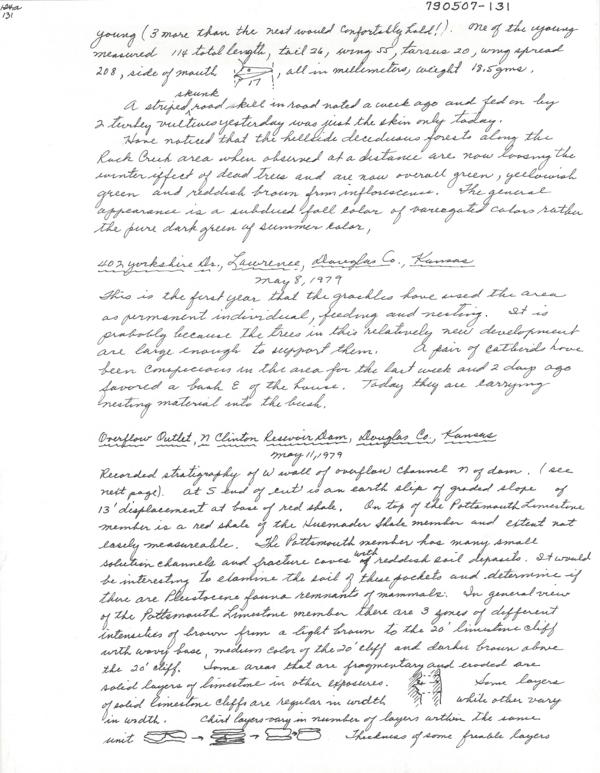 124a
131
790507-131
young (3 more than the nest would comfortably hold!). One of the young
measured 114 total length, tail 26, wing 55, tarsus 20, wing spread
208, side of mouth 17, all in millimeters, weight 18.5 gms.
A striped skunk road kill in road noted a week ago and fed on by
2 turkey vultures yesterday was just the skin only today.
Have noticed that the hillside deciduous forests along the
Rock Creek area when observed at a distance are now loosing the
winter effect of dead trees and are now overall green, yellowish
green and reddish brown from inflorescence. The general
appearance is a subdued fall color of variegated colors rather
the pure dark green of summer color,
402 Yorkshire Dr., Lawrence, Douglas Co., Kansas
May 8, 1979
This is the first year that the grackles have used the area
as permanent individual, feeding and nesting. It is
probably because the trees in this relatively new development
are large enough to support them. A pair of catbirds have
been conspicious in the area for the last week and 2 days ago
favored a bush E of the house. Today they are carrying
nesting material into the bush.
Overflow Outlet, N Clinton Resevoir Dam, Douglas Co., Kansas
May 11, 1979
Recorded stratigraphy of W wall of overflow channel N of dam. (see
next page). At S end of cut is an earth slip of graded slope of
13' displacement at base of red shale. On top of the Plattsmouth Limestone
member is a red shale of the Heumader Shale member and extent not
easily measureable. The Plattsmouth member has many small
solution channels and fracture caves with reddish soil deposits. It would
be interesting to examine the soil of these pockets and determine if
there are Pleistocene fauna remnants of mammals. In general view
of the Plattsmouth Limestone member there are 3 zones of different
intensities of brown from a light brown to the 20' limestone cliff
with wavy base, medium color of the 20' cliff and darker brown above
the 20' cliff. Some areas that are fragmentary and eroded are
solid layers of limestone in other exposures. Some layers
of solid limestone cliffs are regular in width while other vary
in width. Chert layers vary in number of layers within the same
unit Thickness of some friable layers